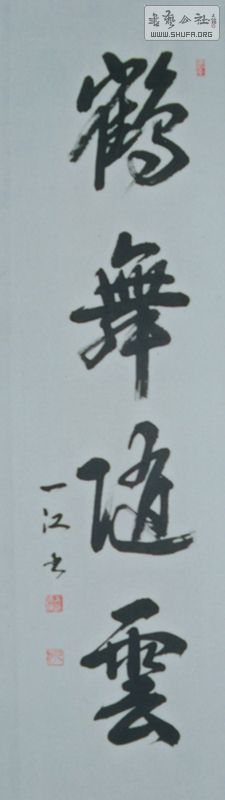 書藝公社
WWW.SHUFA.ORG
鶴舞随雲
一江书